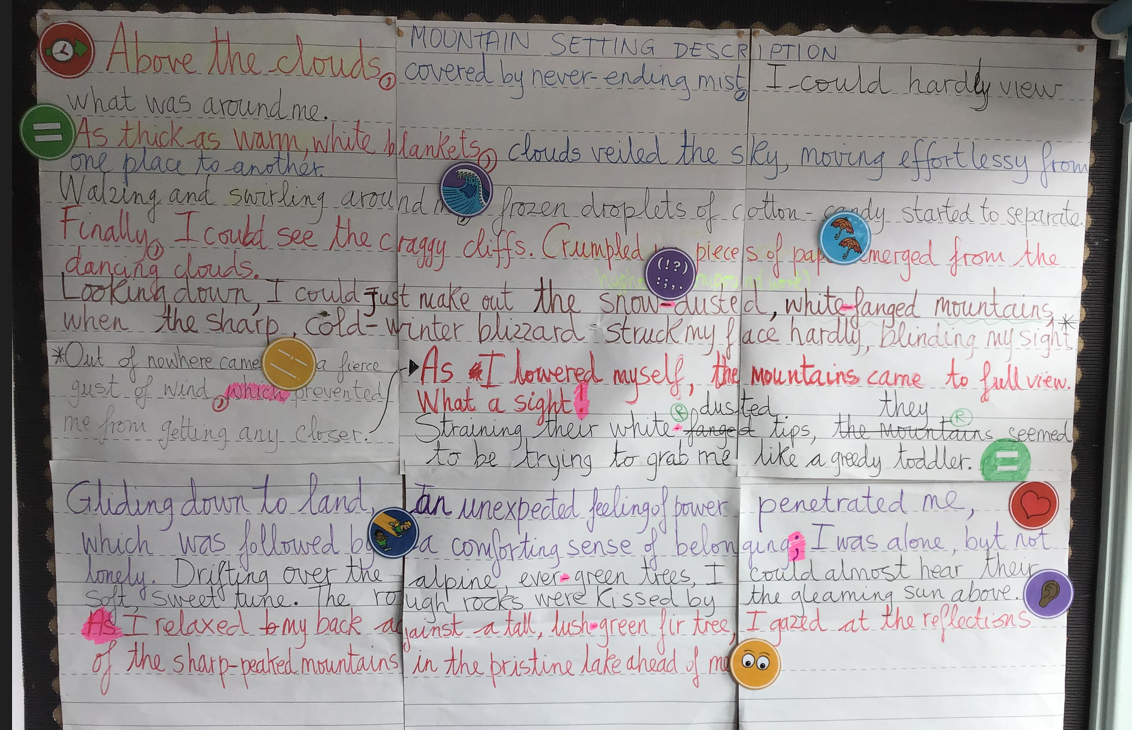 MOUNTAIN SETTING DESCRIPTION
Above the clouds, covered by never-ending mist, I could hardly view
what was around me.
As thick as warm, white blankets, clouds veiled the sky, moving effortlessy from
one place to another.
Walzing and swirling around frozen droplets of cotton-candy started to separate.
Finally, I could see the craggy cliffs. Crumpled pieces of emerged from the
dancing clouds.
Looking down, I could just make out the snow-dusted, white-fanged mountains,
when the sharp, cold-winter blizzard struck my face hardly, blinding my sight.*
*Out of nowhere came a fierce
gust of wind, which prevented
me from getting any closer.
As I lowered myself, the mountains came to full view.
What a sight!
R dusted. they R
Straining their white-fanged tips, the mountains seemed
to be trying to grab me like a greedy toddler.
=
Gliding down to land, an unexpected feeling of power penetrated me,
which was followed by a comforting sense of belonging; I was alone, but not
lonely. Drifting over the alpine, ever-green trees, I could almost hear their
soft, sweet tune. The rough rocks were kissed by the gleaming sun above.
As I relaxed my back against a tall, lush-green fir tree, I gazed at the reflections
of the sharp-peaked mountains in the pristine lake ahead of me
=
(!?)
:;,.